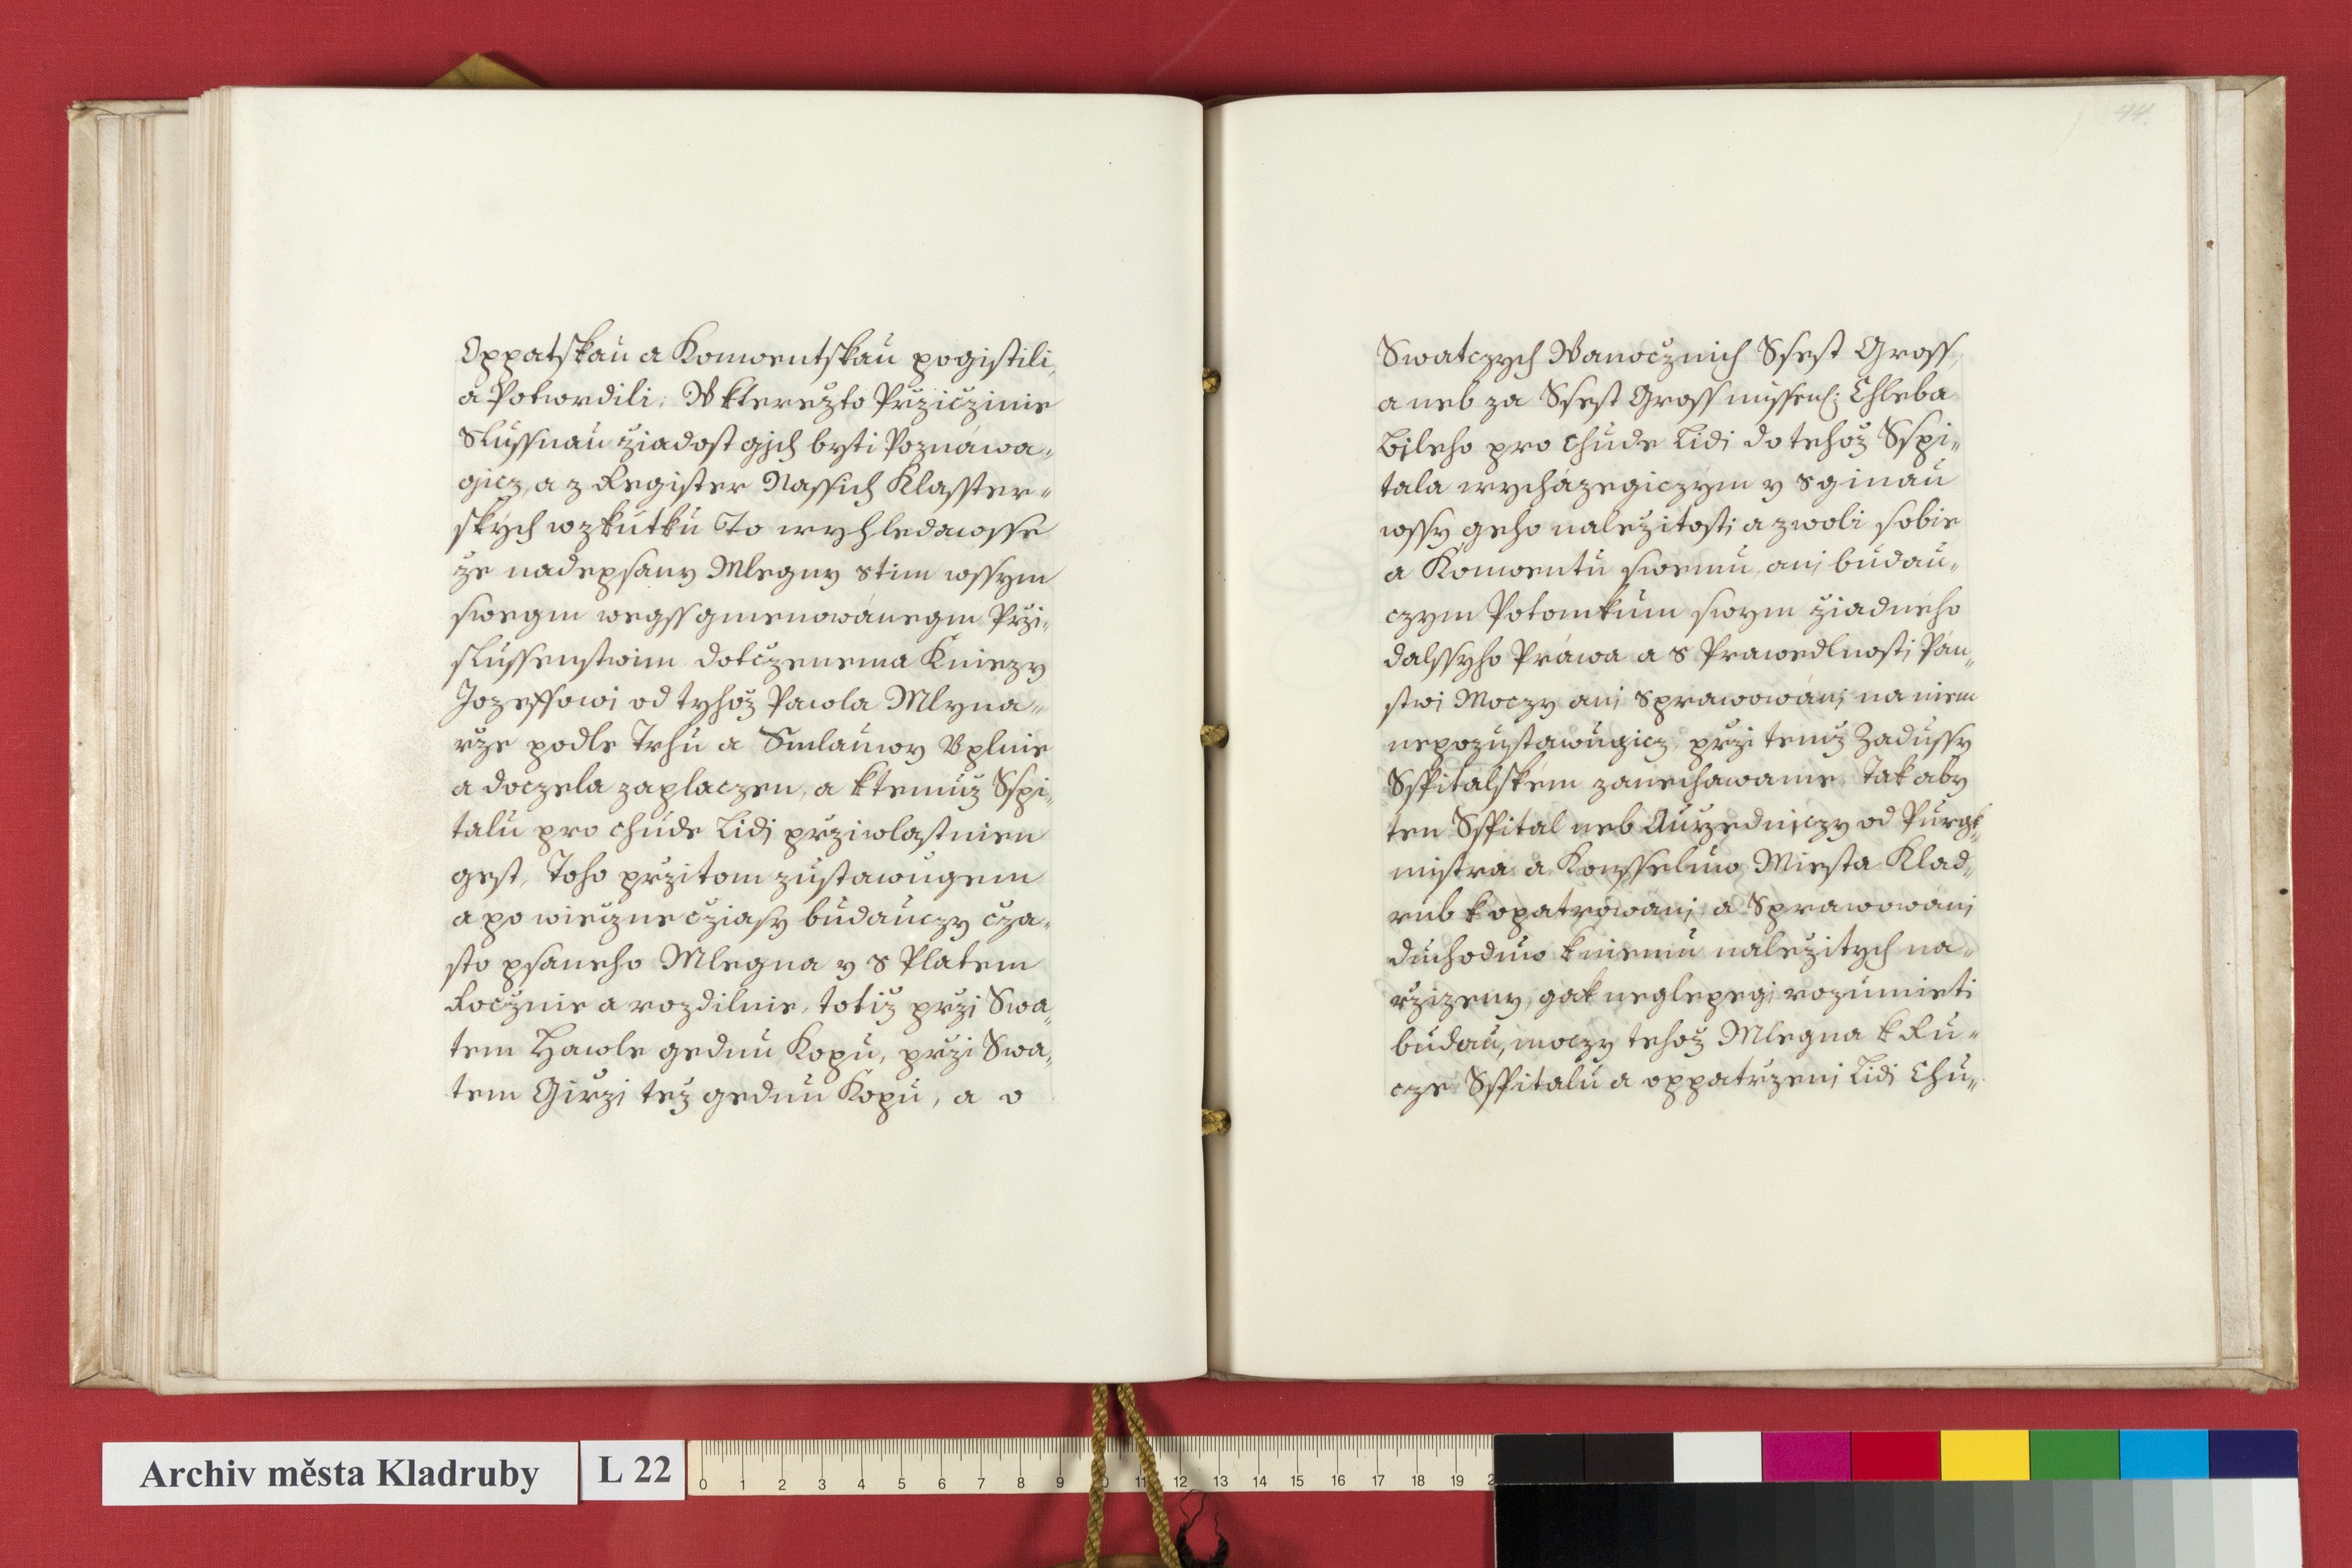 Oppatskau a Konwentskau pogistili,
a Potwrdili: W kterežto Pržičzinie
Slussnau žiadost gjch byti Poznáwa„
gicz, a z Register Nassich Klasster„
ských wzkutku To wyhledawsse
že nadepsany Mlegny s tim wssym
swegm wegss gmenowánegm Prži„
slussenstwim dotčzenema Kniezy
Jozeffowi od tyhož Pawla Mlyna„
rže podle Trhu a Smlauwy Vplnie
a doczela zaplaczen, a k temuž Sspi„
talu pro chude Lidj pržiwlastnien
gest, Toho pržitom zustawugem
a po wiečzne čžiasy budauczy čža„
sto psaneho Mlegna y s Platem
Ročžnie a rozdilnie, totiž prži Swa„
tem Hawle gednu Kopu, prži Swa„
tem Girži tež gednu Kopu, a o
44.
Swatczych Wanočžnich Ssest Gross,
aneb za Ssest Gross missen: Chleba
Bjleho pro chude Lidj do tehož Sspi„
tala wycházegiczým y s ginau
wssy geho naležitosti a zwoli sobie
a Konwentu swemu, anj budau„
czym Potomkum swym žiadného
dalssyho Práwa a s Prawedlnosti Pán„
stwj Moczy anj sprawowánj na niem
nepozustawugicz, prži temž Zadussy
Sspitalském zanechawame, Tak aby
ten Sspital neb Auržedniczy od Purgk„
mistra a Konsseluw Miesta Klad„
rub k opatrowánj a Sprawowánj
duchoduw k niemu naležitych na„
ržizeny, gak neglepegi rozumieti
budau, moczy tehož Mlegna k Ru„
cze Sspitalu a oppatrženj Lidi Chu„
Archiv města Kladruby
L 22
0 1 2 3 4 5 6 7 8 9 10 11 12 13 14 15 16 17 18 19 2